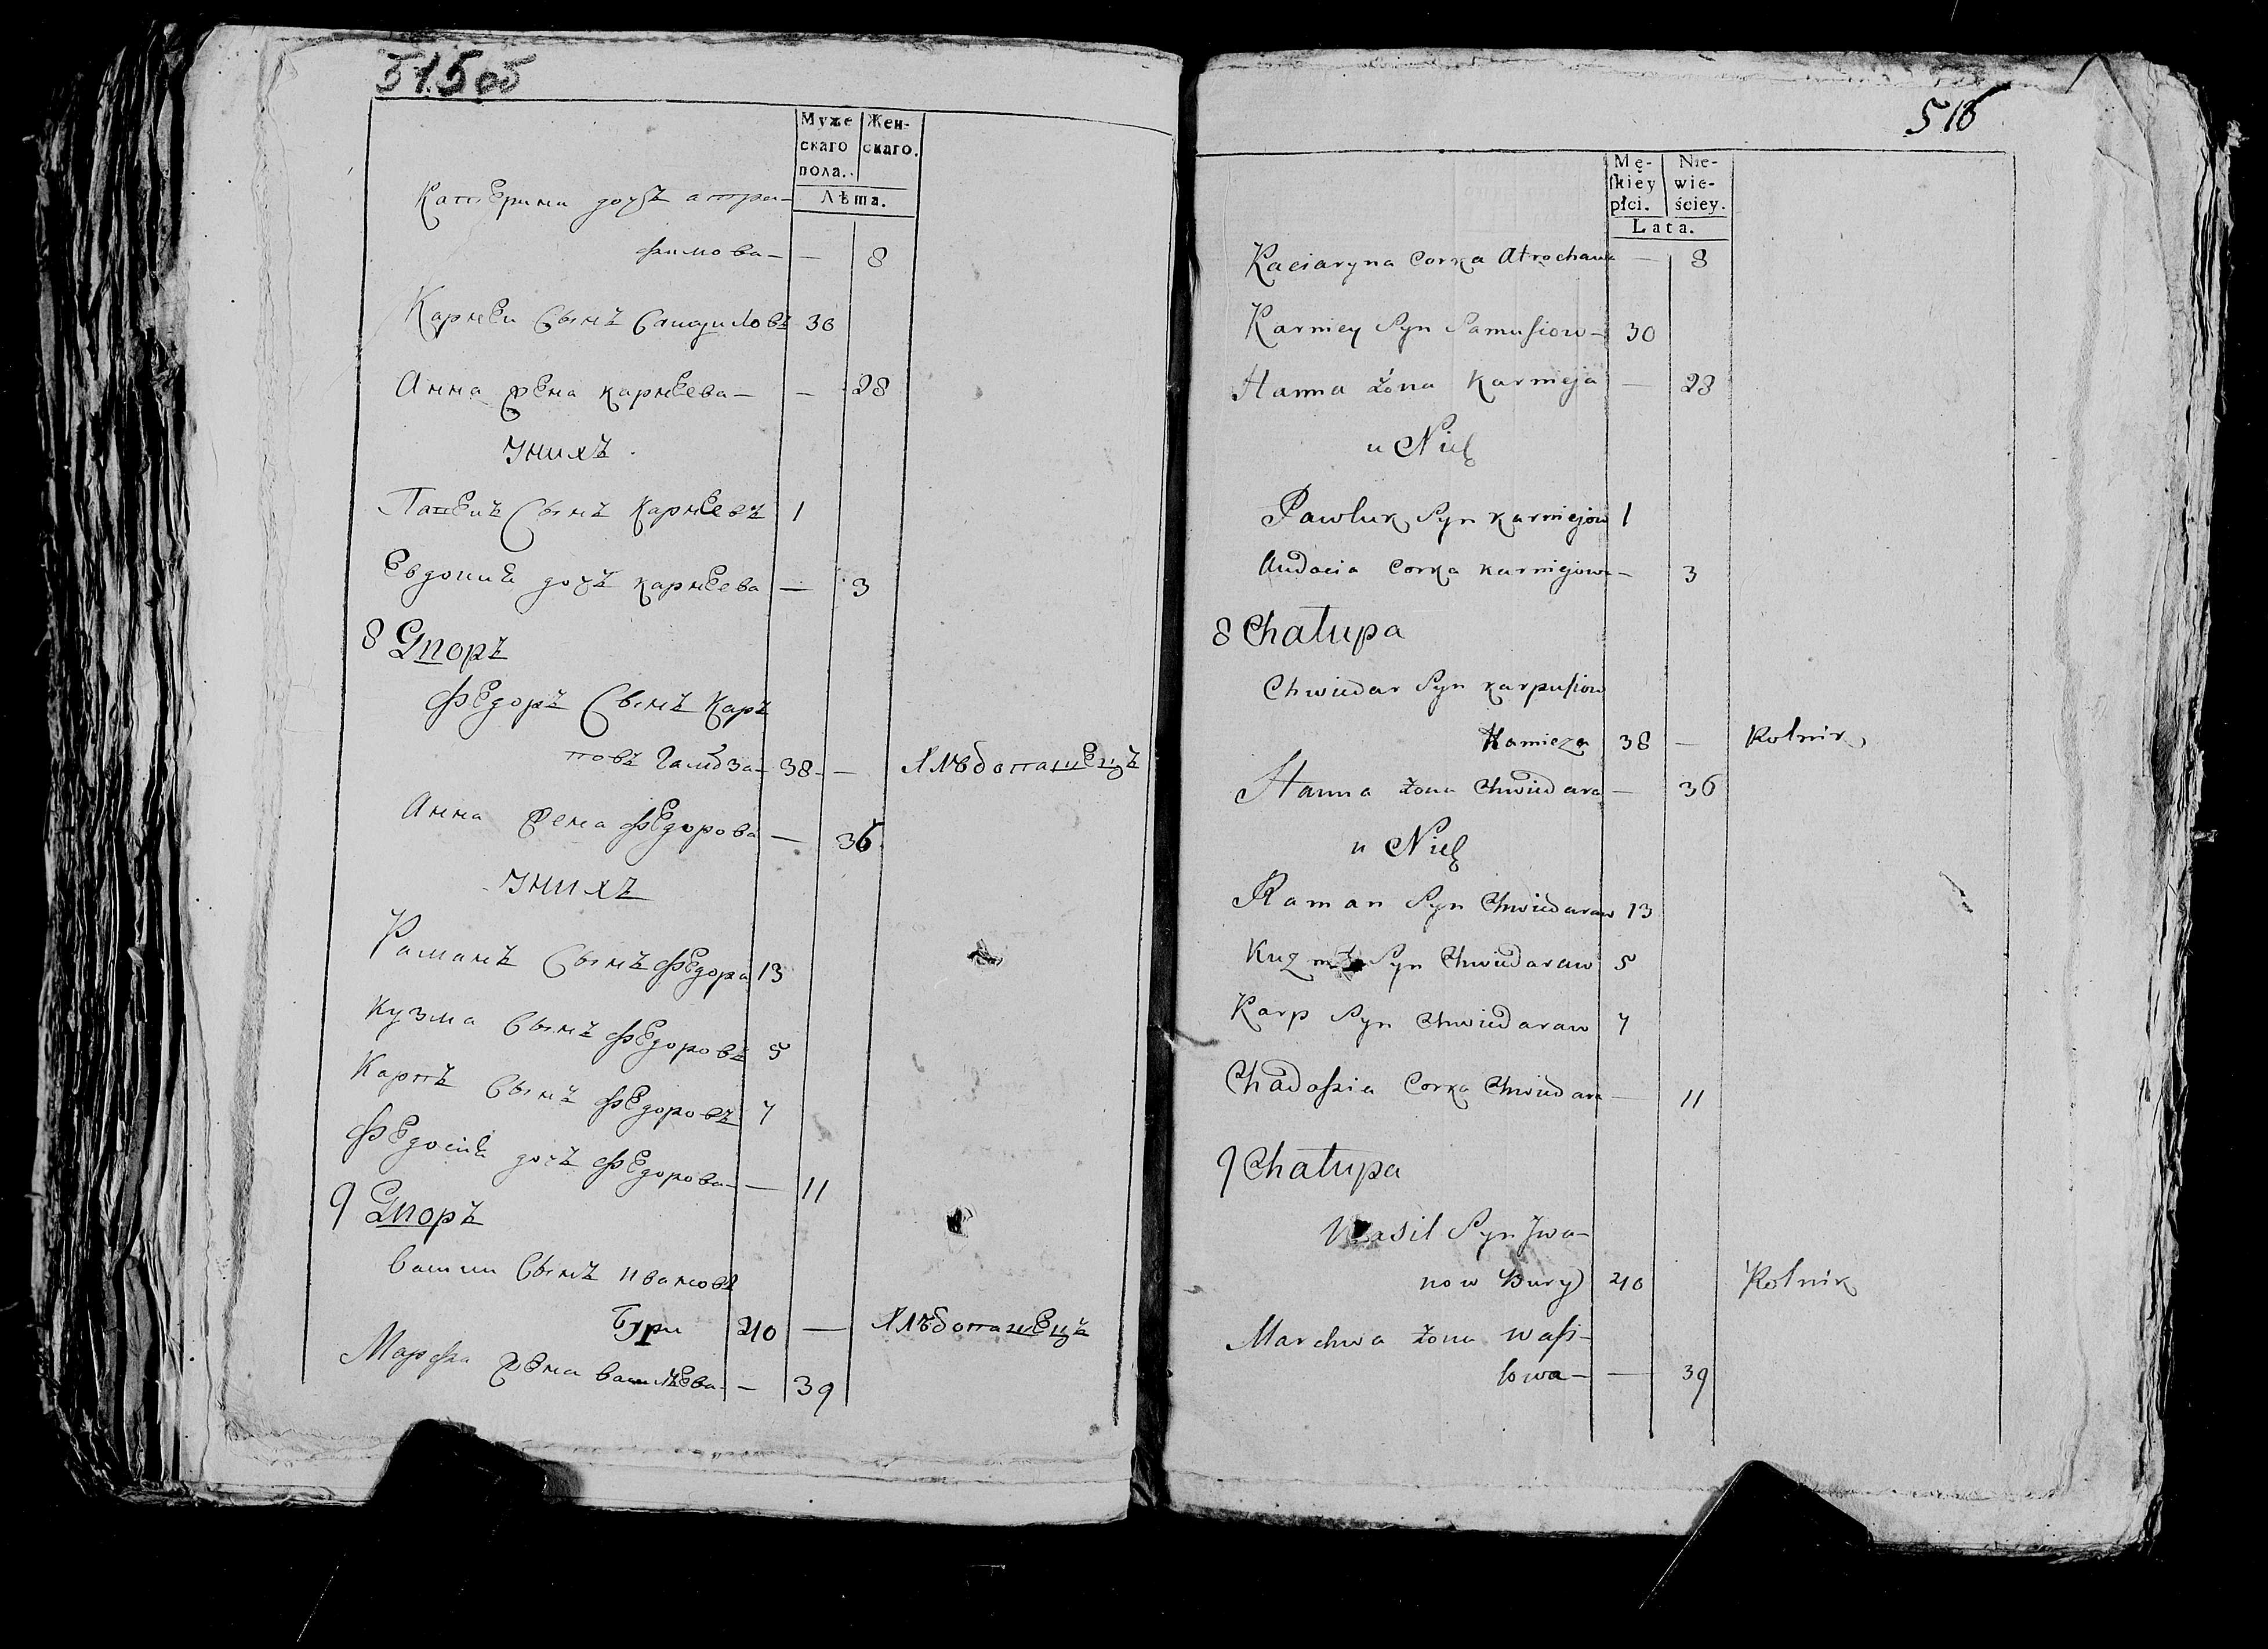 515 об
Муже
скаго
пола.
Жен-
скаго.
Лѣта.
Катерина дочъ атра-
фимова — — 8
Карнеи Сынъ Самуиловъ 30
Анна жена карнеева — — 28
У нихъ
Павелъ Сынъ Карнеевъ 1
Евдокиа дочъ карнеева — 3
8 Дворъ
Федоръ Сынъ Каръ
повъ 38 — Хлѣбопашецъ
Анна жена Федорова — 36
У нихъ
Раманъ Сынъ Федора 13
Кузма Сынъ Федоровъ 5
Карпъ Сынъ Федоровъ 7
Федосиа дочъ Федорова — 11
9 Дворъ
Васили Сынъ Ивановъ
Буры 40 — Хлѣбопашецъ
Марфа жена василѣева — 39
516
Mę-
ſkiéy
płci.
Nie-
wie-
ściey.
Lata.
Kaciaryna Corka Atrochawa — 8
Karniey Syn Samuſiow — 30
Hanna żona Karnieja — 28
u Nich
Pawluk Syn Karniejow 1
Audocia Corka Karniejowa — 3
8 Chałupa
Chwiedar Syn Karpuſiow
38 — Rolnik
Hanna żona Chwiedara — 36
u Nich
Raman Syn Chwiedaraw 13
Kuzma Syn Chwiedaraw 5
Karp Syn Chwiedaraw 7
Chadoſia Corka Chwiedara — 11
9 Chałupa
Wasil Syn Jwa-
now Bury 40 Rolnik
Marchwa żona Waſi-
lowa — — 39